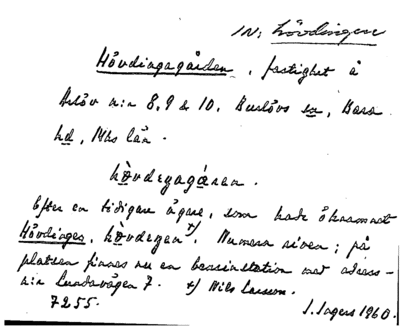 IN: Hövdingen
Hövdingagården, fastighet å
Arlöv n:r 8, 9 & 10, Burlövs sn, Bara
hd, Mhs län.
hövdegagáren.
Efter en tidigare ägare, som hade öknamnet
Hövdingen, hövdegen x). Numera riven; på
platsen finnes nu en bensinstation med adress-
n:r Lundavägen 7. x) Nils Larsson.
7255. J. Sagers 1960.